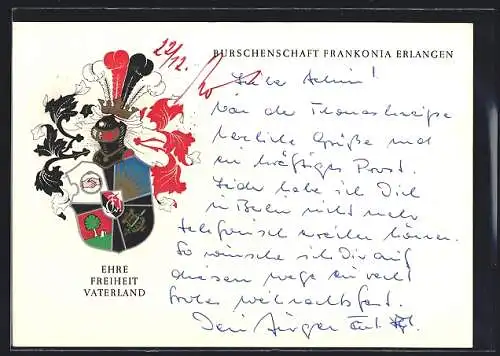 22/12.
BURSCHENSCHAFT FRANKONIA ERLANGEN
Lieber Achim!
Von der Thomaskneipe
herzliche Grüße und
ein kräftiges Prost.
Leider habe ich Dich
in Berlin nicht mehr
telefonisch erreichen können.
So wünsche ich Dir auf
diesem Wege ein recht
frohes Weihnachtsfest.
Dein Jürgen
EHRE
FREIHEIT
VATERLAND